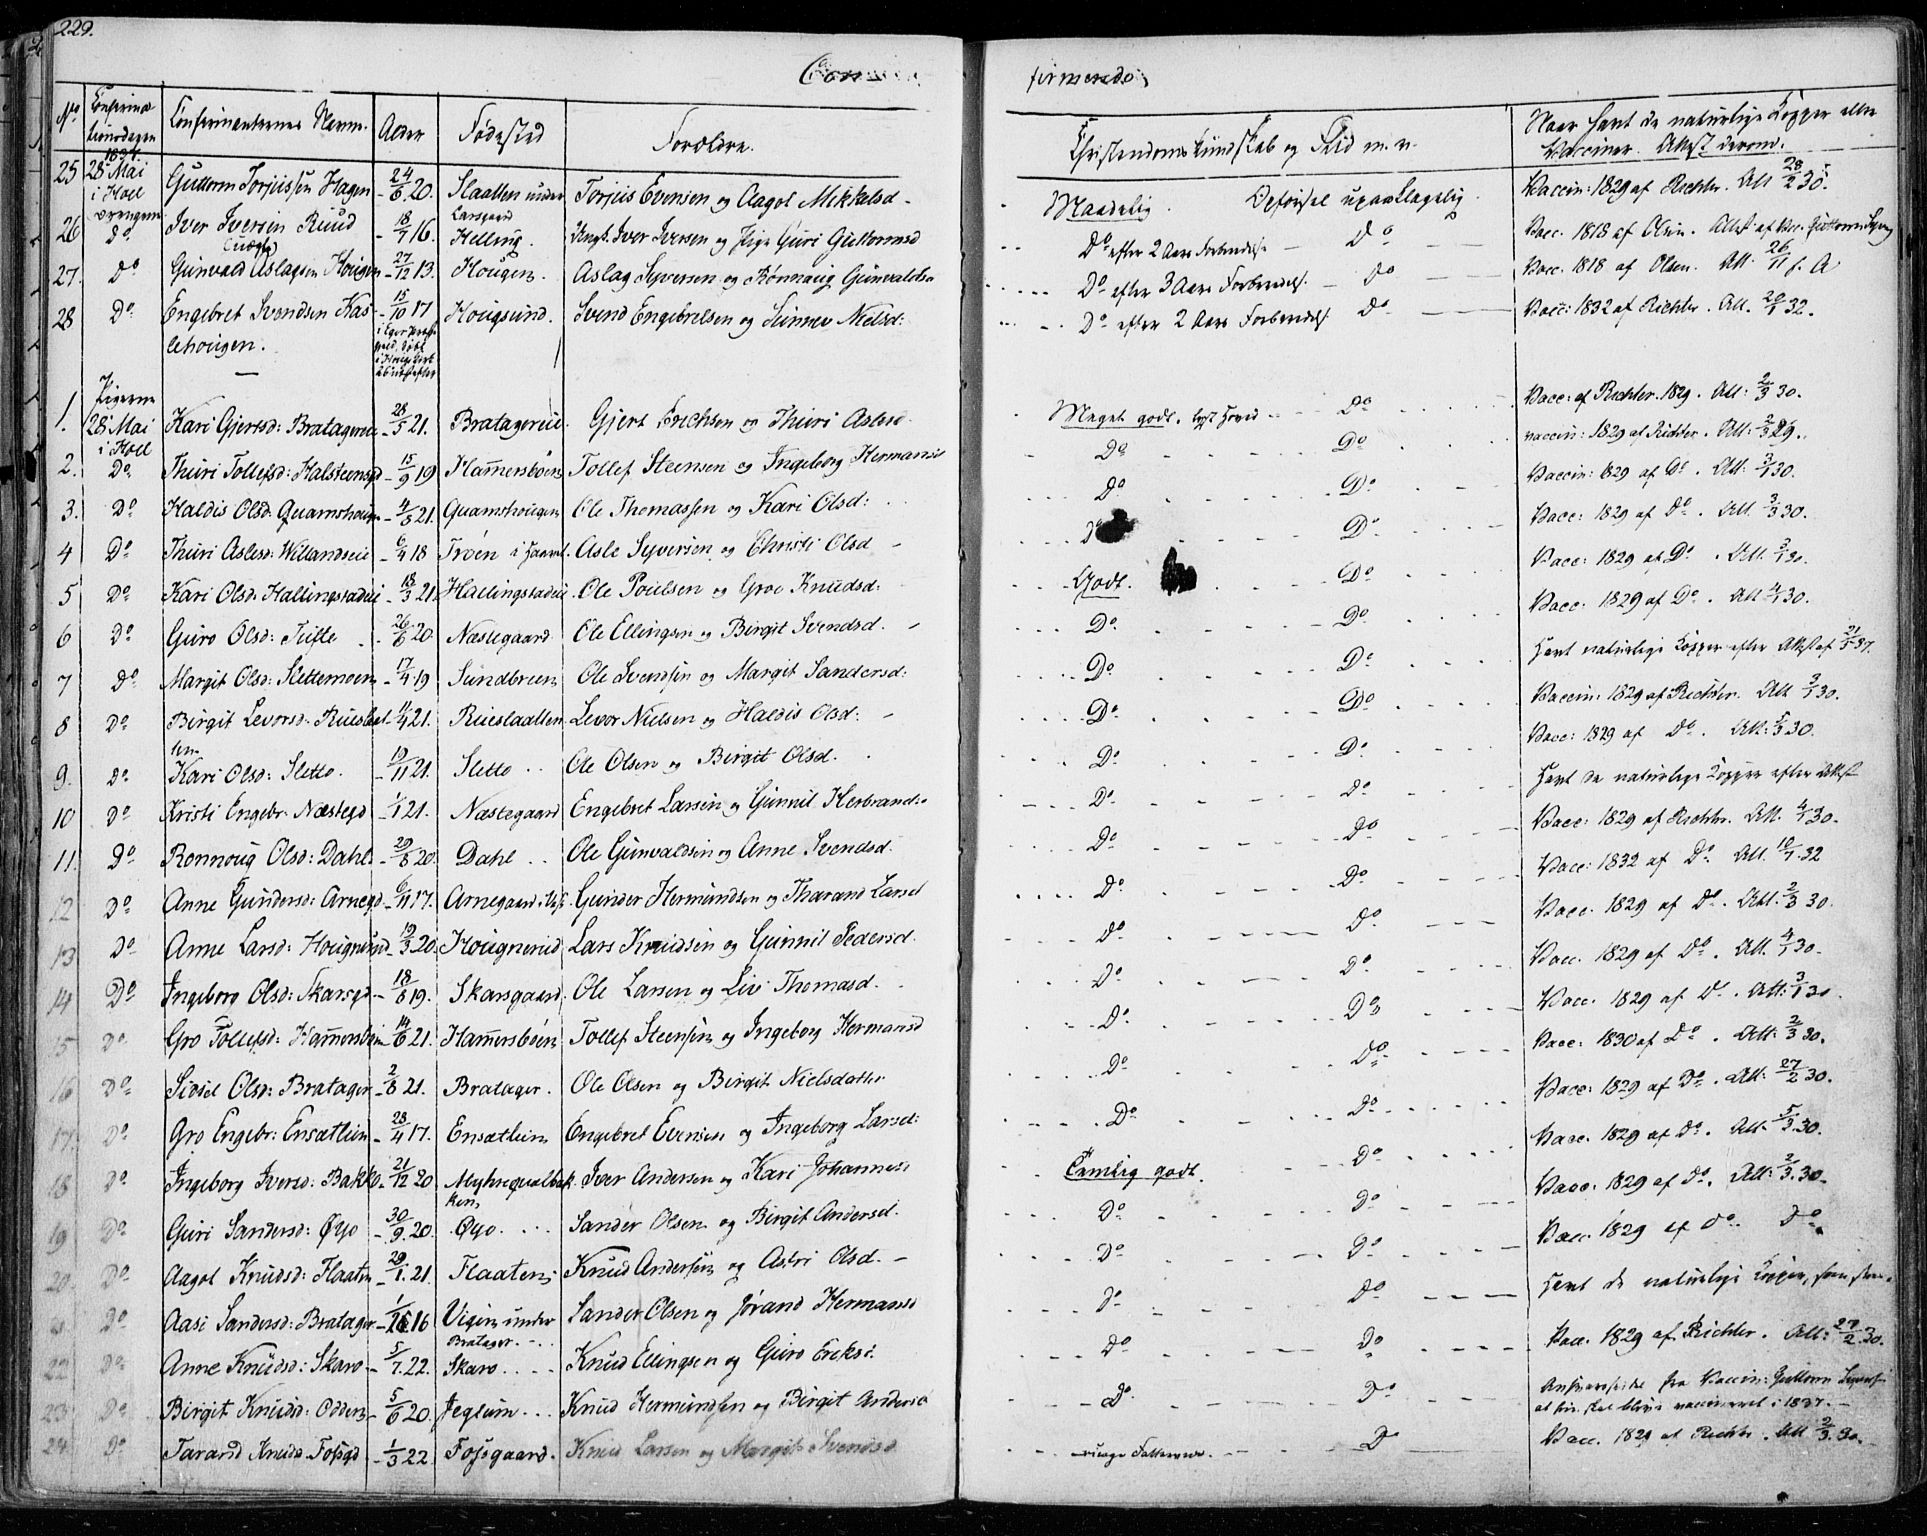 229.
Con firmerede
No Confirmations dagen 1837. Confirmanternes Navne. Alder Fødested Forældre. Christendomskundskab og Flid m. v. Naar havt de naturlige Kopper eller Vacciner. Attest derom.
25 28 Mai i Holl Guttorm Torjussen Hagen 24/6 20. Slaatten under Torjus Evensen og Aagot Mikkelsd Maadelig. Opførsel upaaklagelig. Vaccin: 1829 af Richter. Att 28/2 30.
drengene Larsgaard
26 Do Iver Iversen Ruud 18/7 16. Helling. Ungk. Iver Iversen og Pige Guri Guttormsd Do efter 2 Aars Forberedelse Do Vacc. 1818 af Olsen.
(uægte)
27. Do Gunvald Aslagsen Hougen 27/12 13. Hougen. Aslag Syversen og Rønnaug Gunvaldsd Do efter 3 Aars Forberedels. Do Vacc. 1818 af Olsen. Att. 26/11 f. A
28 Do Engebret Svendsen Kas- 15/10 17 Hougsund. Svend Engebretsen og Sunnev Nielsd: Do efter 2 Aars Forberedelse Do Vacc: 1832 af Richter. Att. 20/1 32.
lehougen.
Pigerne
1. 28 Mai i Holl Kari Gjertsd: Bratagereie 28/5 21. Bratagereie. Gjert Erichsen og Thuri Aslesd. Meget godt. Do Vacc: af Richter. 1829. Att: 2/3 30.
2. Do Thuri Tollefsd: Halsteensgd 15/9 19 Hammersbøen Tollef Steensen og Ingeborg Hermansd Do Do vaccin: 1829 af Richter. Att: 2/3 29.
3. Do Haldis Olsd: Quamshougen 4/8 21. Quamshougen Ole Thomassen og Kari Olsd: Do Do Vaccin: 1829 af Do. Att: 3/1 30.
4 Do Thuri Aslesd: Willandseie 6/4 18 Trøen i Aasle Syversen og Christi Olsd Do Do Vacc: 1829 af Do. Att. 3/3 30.
5 Do Kari Olsd: Hallingstadeie 18/3 21. Hallingstadeie. Ole Poulsen og Groe Knudsd: Godt. Do Vacc: 1829 af Do. Att. 3/1 30.
6 Do Guro Olsd: Tufte 26/6 20 Næstegaard Ole Ellingsen og Birgit Svendsd. Do Do Vacc: 1829 af Do. Att 4/1 30.
7 Do Margit Olsd: Slettemoen 17/4 19 Sundbreen Ole Svendsen og Margit Sandersd: Do Do Havt naturlige Kopper efter Attest af 21/5 37.
8 Do Birgit Levorsd: Rueslaat- 11/4 21. Rueslaatten Levor Nielsen og Haldis Olsd: Do Do Vaccin: 1829 af Richter. Att 3/1 30.
ten
9. Do Kari Olsd: Sletto. 19/11 21. Sletto Ole Olsen og Birgit Olsd. Do Do Vacc: 1829 af Do. Att: 2/3 30.
10 Do Kristi Engebr: Næstegd 1/1 21. Næstegaard Engebret Larsen og Gunnil Herbrandsd Do Do Havt de naturlige Kopper efter Attest
11. Do Ronnoug Olsd: Dahl 29/8 20. Dahl Ole Gunvaldsen og Anne Svendsd. Do Do Vacc: 1829 af Richter. Att. 4/1 30.
12 Do Anne Gundersd: Arnegd 6/11 17. Arnegaard Gunder Hermundsen og Tharand Larsd Do Do Vacc: 1832 af Do. Att. 10/7 32
13 Do Anne Larsd: Hougnerud 19/3 20. Hougnerud Lars Knudsen og Gunnil Pedersd. Do Do Vacc. 1829 af Do. Att: 2/3 30.
14 Do Ingeborg Olsd: Skarsgd 18/6 19. Skarsgaard. Ole Larsen og Liv Thomasd. Do Do Vacc. 1829 af Do. Att. 4/1 30.
15 Do Gro Tollefsd: Hammersbøen 14/6 21. Hammersbøen Tollef Steensen og Ingeborg Hermansd Do Do Vacc. 1829 af Do. Att: 3/1 30.
16 Do Sidsel Olsd: Bratager 2/8 21. Bratager. Ole Olsen og Birgit Nielsdatter Do Do Vacc: 1830 af Do. Att: 2/3 30.
17. Do Gro Engebr: Ensætleien 28/4 17. Ensætleien Engebret Evensen og Ingeborg Larsd: Do Do Vacc: 1829 af Do. Att: 27/2 30.
18 Do Ingeborg Iversd: Bakko 21/12 20 Myhrequalbak- Iver Andersen og Kari Johannesd Temlig godt. Do Vacc: 1829 af Do. Att: 5/3 30.
ken
19 Do Guri Sandersd: Øyo 30/9. 20. Øyo. Sander Olsen og Birgit Andersd. Do Do Vacc: 1829 af Do. Att: 2/3. 30.
20. Do Aagot Knudsd: Flaaten 29/1. 21. Flaaten Knud Andersen og Astri Olsd. Do Do Vacc. 1829 af Do. Do
21 Do Aasi Sandersd: Bratager 16 Vigen under Sander Olsen og Jørand Hermansd Do Do Havt de naturlige Kopper,
Bratager.
22 Do Anne Knudsd: Skaro 5/7. 22. Skaro. Knud Ellingsen og Guro Eriksd. Do Do Vacc. 1829 af Richter. Att: 27/2 30.
23. Do Birgit Knudsd: Oddens 5/6 20. Jeglum. Knud Hermundsen og Birgit Andersd Do Do fra Vaccin: Guttorm
vaccineret i 1837.
24 Do Tarand Knuds: Fossgd 1/3 22. Fossgaard. Knud Larsen og Margit Svendsd ringe Fatteevne. Do Vacc. 1829 af Richter. Att 2/3. 30.